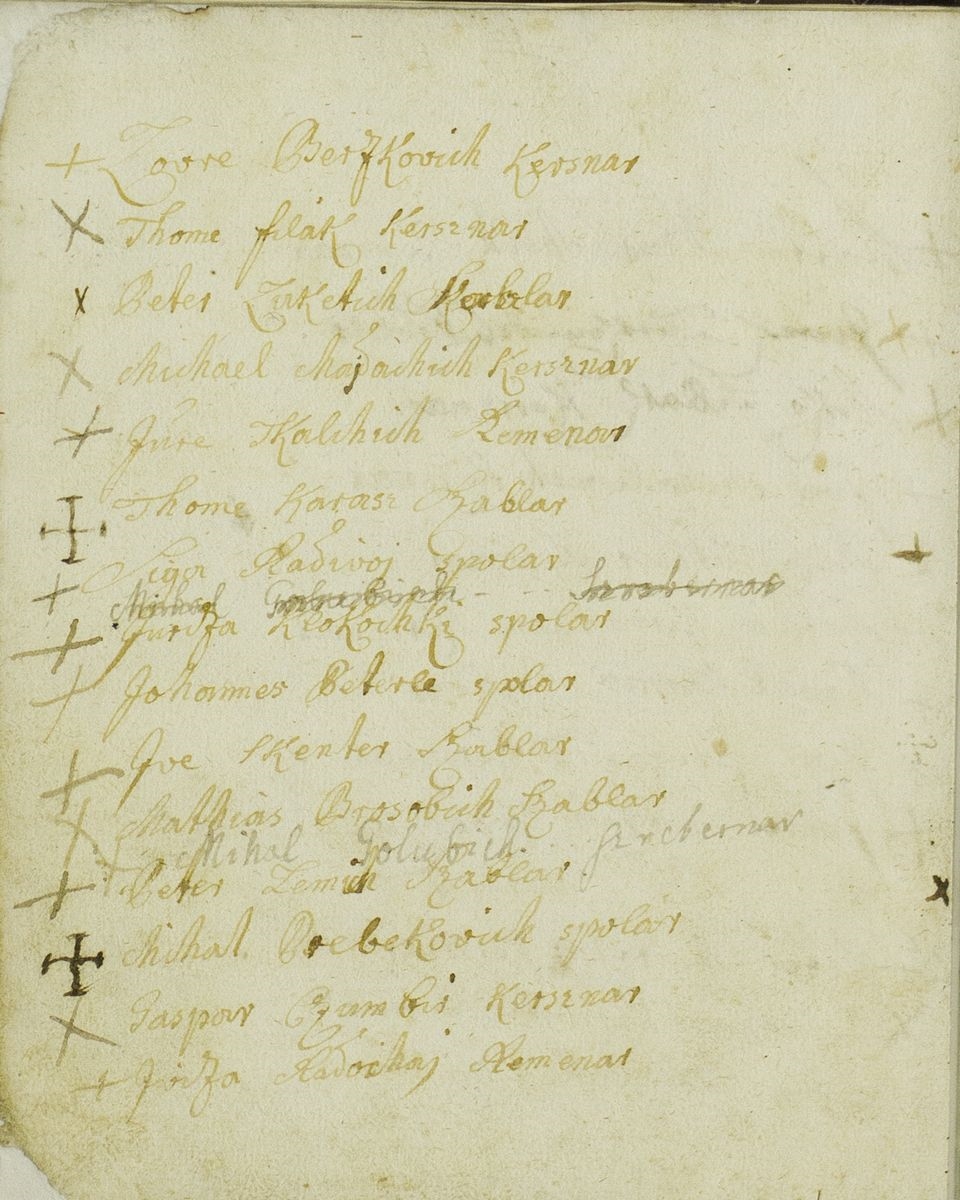 + Lovre Berzkovich Kersnar
X Thome filak Kersznar
x Peter Zuketich
X Michael Kersznar
+ Jure Tkalchich Remenar
+ Thome Karasz Szablar
Siga Radivoj spolar
+ Mihael
+ Jurisa Klokochki spolar
+ Johannes Peterle spolar
+ Ive Skenter Szablar
X Mathias Brosobich Szablar
Mihal Golubich Szrebernar
+ Peter Zemich Szablar
+ Michal Brebekovich spolar
X Gaspar Czumbir Kersznar
+ Radoichaj Remenar